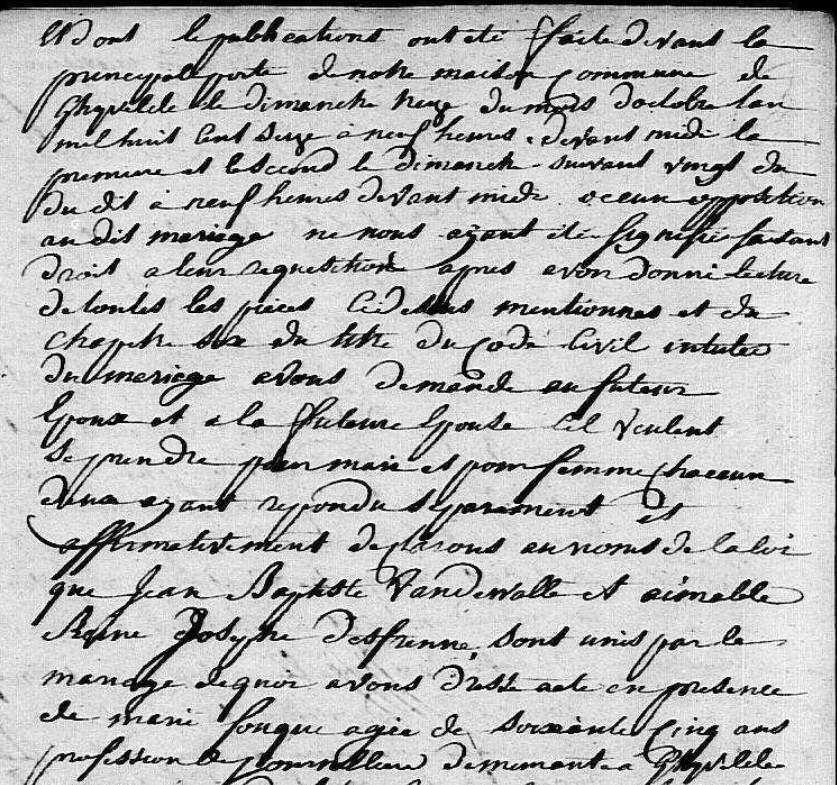 Et dont le publications ont été faite devant la
principal porte de notre maison commune de
Ghyvelde le dimanche du mois doctobre lan
mil huit cent seize à neuf heures devant midi la
premiere et le second le dimanche suivant vingt du
du dit à neuf heures devant midi oceun opposition
au dit mariage ne nous ayant été signifié faisant
droit a leur requisition apres avon donné lecture
de toutes les pieces cidessus mentionnes et du
chapitre six du titre du code civil intules
du mariage avons demande au futeur
Epoux et a la future Epouse cil veulent
se prendre pour marie et pour femme chaceun
deux ayant repondu separement et
affirmativement declarons au noms de la loi
que Jean Baptiste Vandewalle et aimable
Reine Josephe desfrenne sont unis par le
mariage de quoi avons dressé acte en presence
de marie fouque agée de soixante cinq ans
profession de journalliere demeurante a Ghyvelde